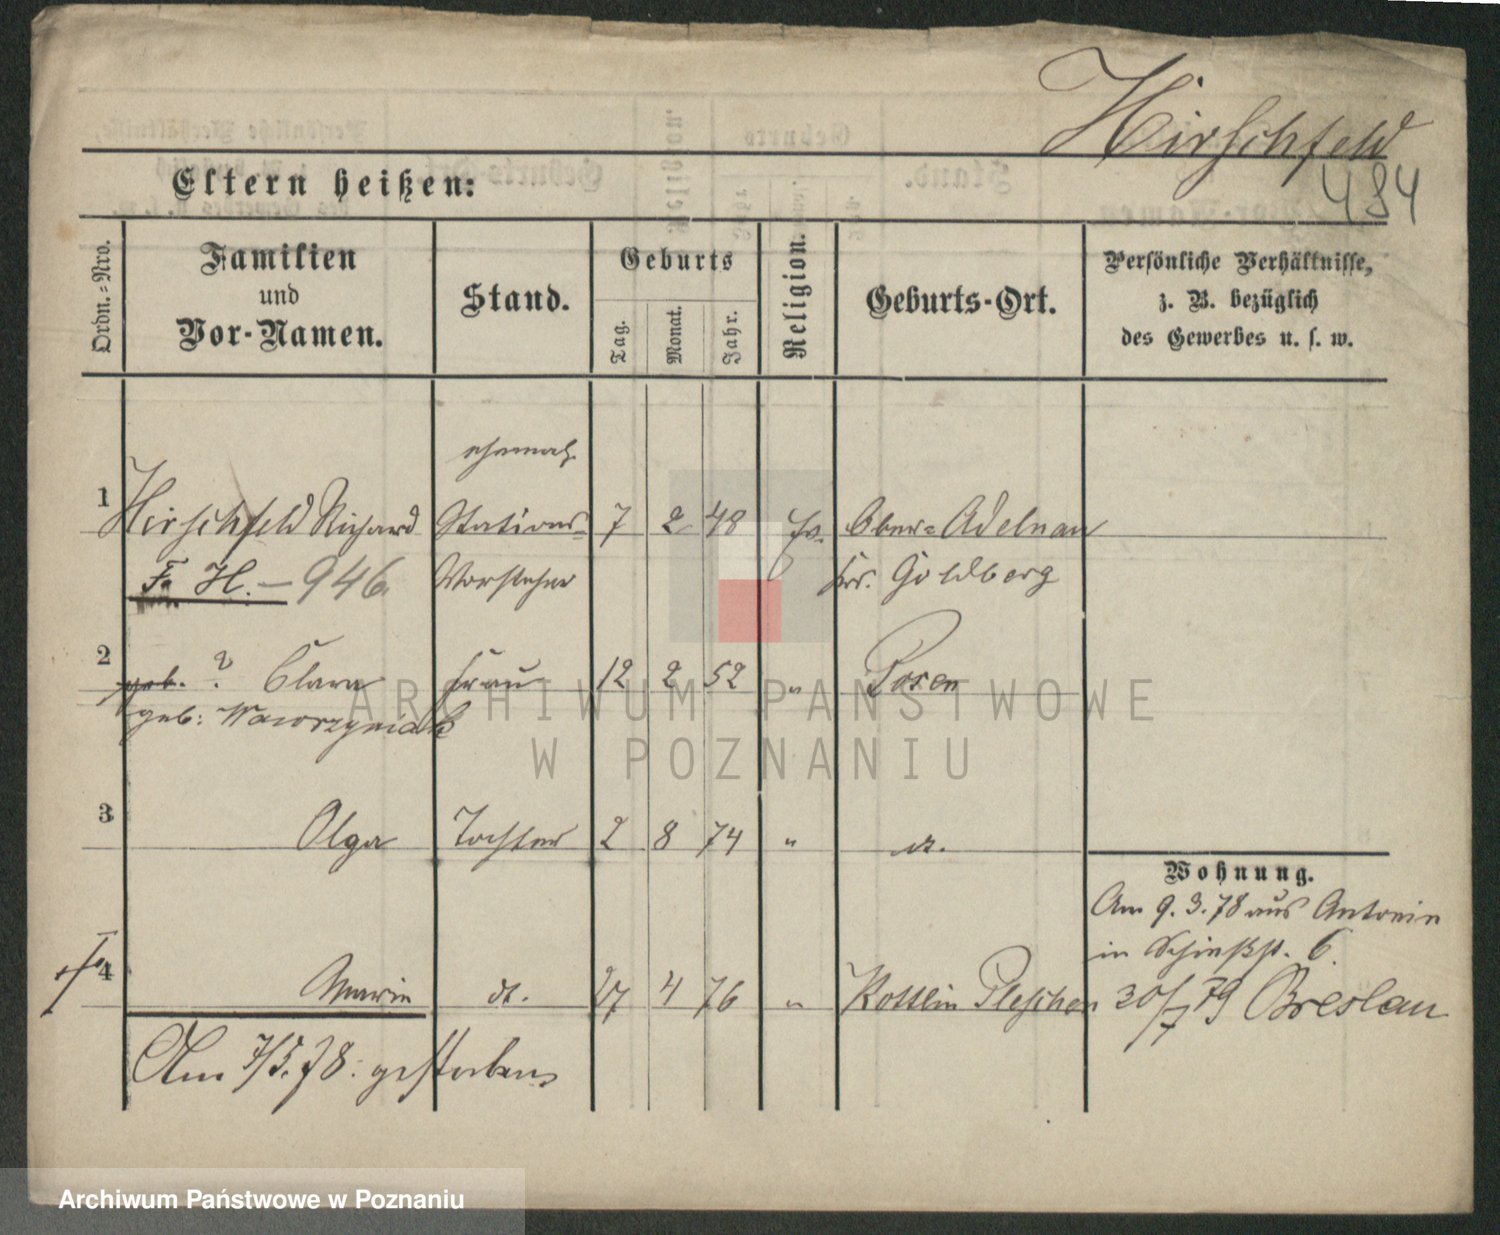 Hirschfeld
484
Eltern heißen:
Ordn.=Nro.
Familien
und
Vor-Namen.
Stand.
Geburts
Tag.
Monat.
Jahr.
Religion.
Geburts-Ort.
Persönliche Verhältnisse,
z. B. bezüglich
des Gewerbes u. s. w.
ehemal.
1 Hirschfeld Richard Stations= 7 2 48 Ev. Ober=Adelnau
F. H. — 946. Vorsteher Krs. Goldberg
2 geb. ? Clara Frau 12 2 52 " Posen
geb: Wawrzyniak
3 Olga Tochter 2 8 74 " dt.
Wohnung.
Am 9. 3. 78 aus Antonin
in Schießst. 6.
4 Marie dt. 27 4 76 " Kottlin Pleschen 30/7 79 Breslau
Am 7/5. 78. gestorben
ARCHIWUM PAŃSTWOWE
W POZNANIU
Archiwum Państwowe w Poznaniu